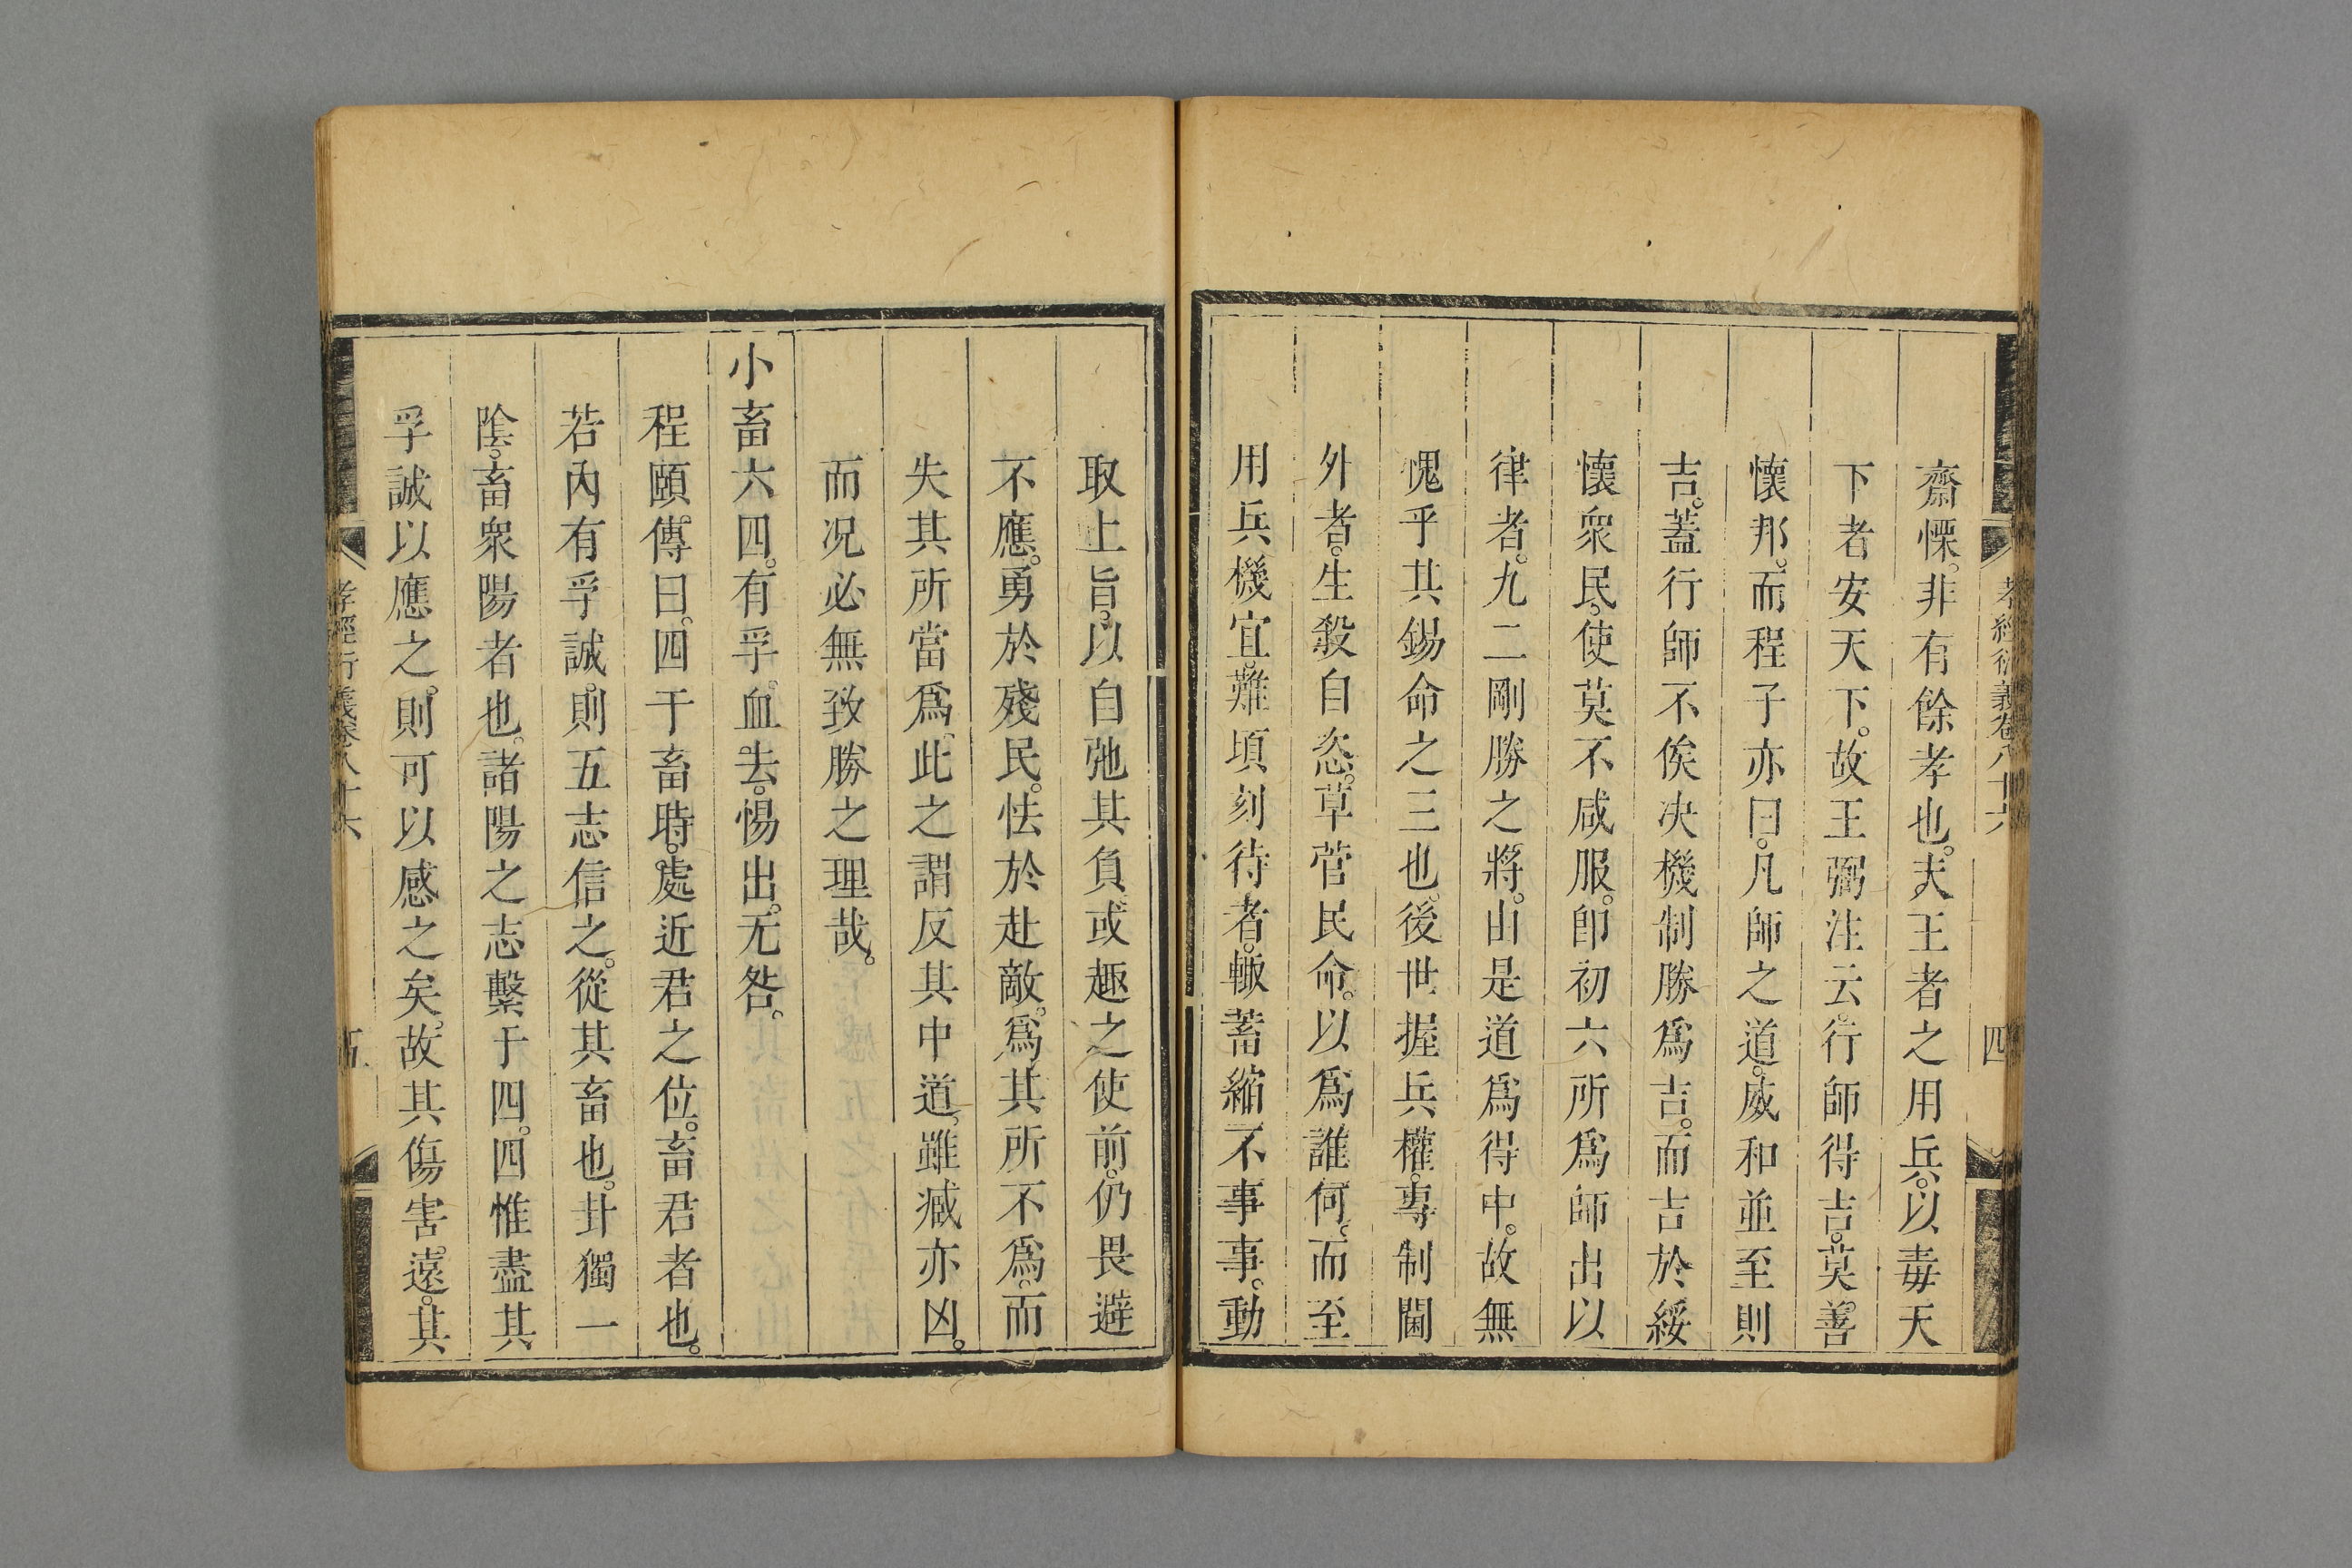 孝經衍義卷八十六
四
齋慄。非有餘孝也。夫王者之用兵。以毒天
下者安天下。故王弼注云。行師得吉。莫善
懷邦。而程子亦曰。凡師之道。威和並至則
吉。蓋行師不俟决機制勝爲吉。而吉於綏
懷衆民。使莫不咸服。卽初六所爲師出以
律者。九二剛勝之將。由是道爲得中。故無
愧乎其錫命之三也。後世握兵權。專制閫
外者。生殺自恣。草菅民命。以爲誰何。而至
用兵機宜。難頃刻待者。輙蓄縮不事事。動
取上旨。以自弛其負。或趣之使前。仍畏避
不應。勇於殘民。怯於赴敵。爲其所不爲。而
失其所當爲。此之謂反其中道。雖臧亦凶。
而况必無致勝之理哉。
小畜六四。有孚。血去。惕出。无咎。
程頤傳曰。四于畜時。處近君之位。畜君者也。
若內有孚誠。則五志信之。從其畜也。卦獨一
陰。畜衆陽者也。諸陽之志繫于四。四惟盡其
孚誠以應之。則可以感之矣。故其傷害遠。其
孝經衍義卷八十六
五